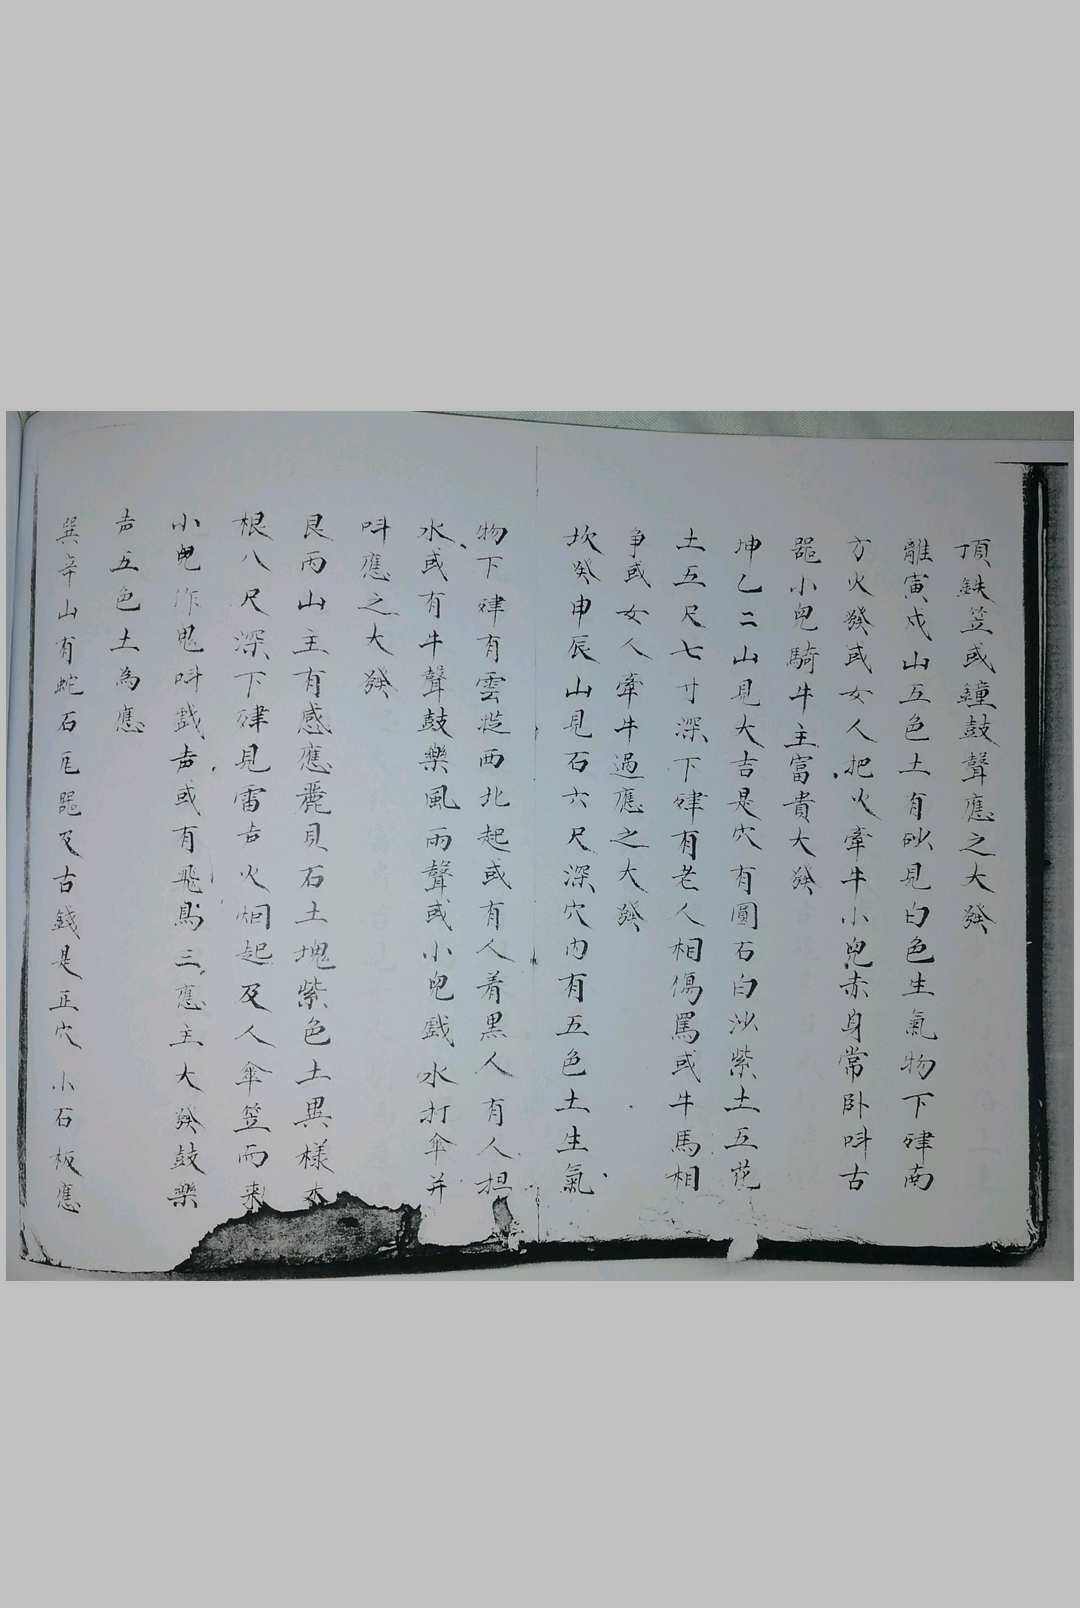 頂鉄笠或鐘鼓聲應之大發
離寅戌山五色土有砂見白色生氣物下硉南
方火發或女人把火牽牛小兒赤身常卧呌古
噐小兒騎牛主富貴大發
坤乙二山見大吉是穴有圓石白沙紫土五花
土五尺七寸深下硉有老人相傷罵或牛馬相
争或女人牽牛過應之大發
坎癸申辰山見石六尺深穴内有五色土生氣
物下硉有雲從西北起或有人着黑人有人担
水或有牛聲鼓樂風雨聲或小兒戲水打傘并
呌應之大發
艮丙山主有感應鹿貝石土塊紫色土異樣木
根八尺深下硉見雷声火烟起及人傘笠而来
小兒作鬼呌戲声或有飛馬三應主大發鼓樂
声五色土為應
巽辛山有蛇石瓦噐及古錢是正穴小石板應